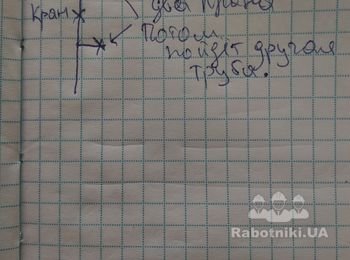 Кран
два крана
Потом
пойдёт другая
труба.
Rabotniki.UA